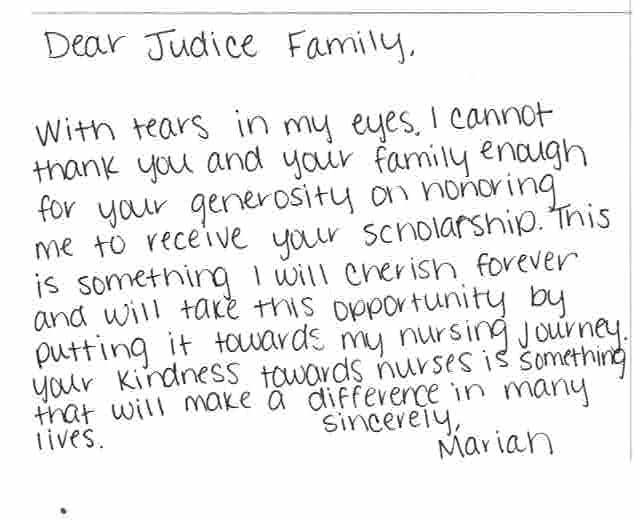 Dear Judice Family,
With tears in my eyes, I cannot
thank you and your family enough
for your generosity on honoring
me to receive your scholarship. This
is something I will cherish forever
and will take this opportunity by
putting it towards my nursing journey.
your kindness towards nurses is something
that will make a difference in many
lives.
sincerely,
Mariah